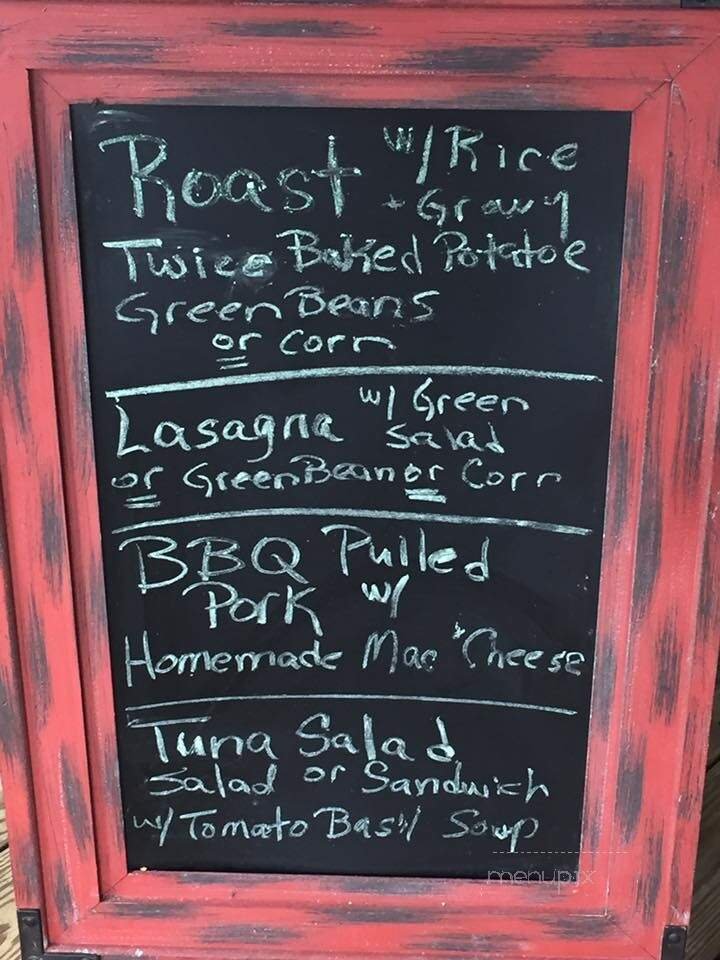 Roast w/ Rice
+ Gravy
Twice Baked Potatoe
Green Beans
or Corn
Lasagna w/ Green
Salad
or Green Bean or Corn
BBQ Pulled
Pork w/
Homemade Mac + Cheese
Tuna Salad
Salad or Sandwich
w/ Tomato Basil Soup
menupix